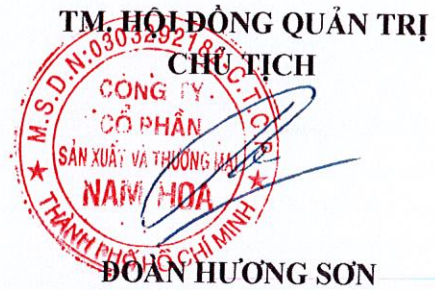 TM. HỘI ĐỒNG QUẢN TRỊ
CHỦ TỊCH
M.S.D.N:0303292182.C.T.C.P
CÔNG TY
CỔ PHẦN
SẢN XUẤT VÀ THƯƠNG MẠI
NAM HOA
THÀNH PHỐ HỒ CHÍ MINH
ĐOÀN HƯƠNG SƠN